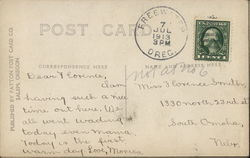 POST CARD
FREEWATER
7
JUL
1913
3PM
OREG.
CORRESPONDENCE HERE
NAME AND ADDRESS HERE
PUBLISHED BY PATTON POST CARD CO.
SALEM, OREGON
Dear Florine,
I am
having such a nice
time out here. We
all went wading
today even Mama.
Today is the first
warm day. Love,
not at No 6
Miss Florence Smith,
1330 north 23rd st
South Omaha,
Nebr.